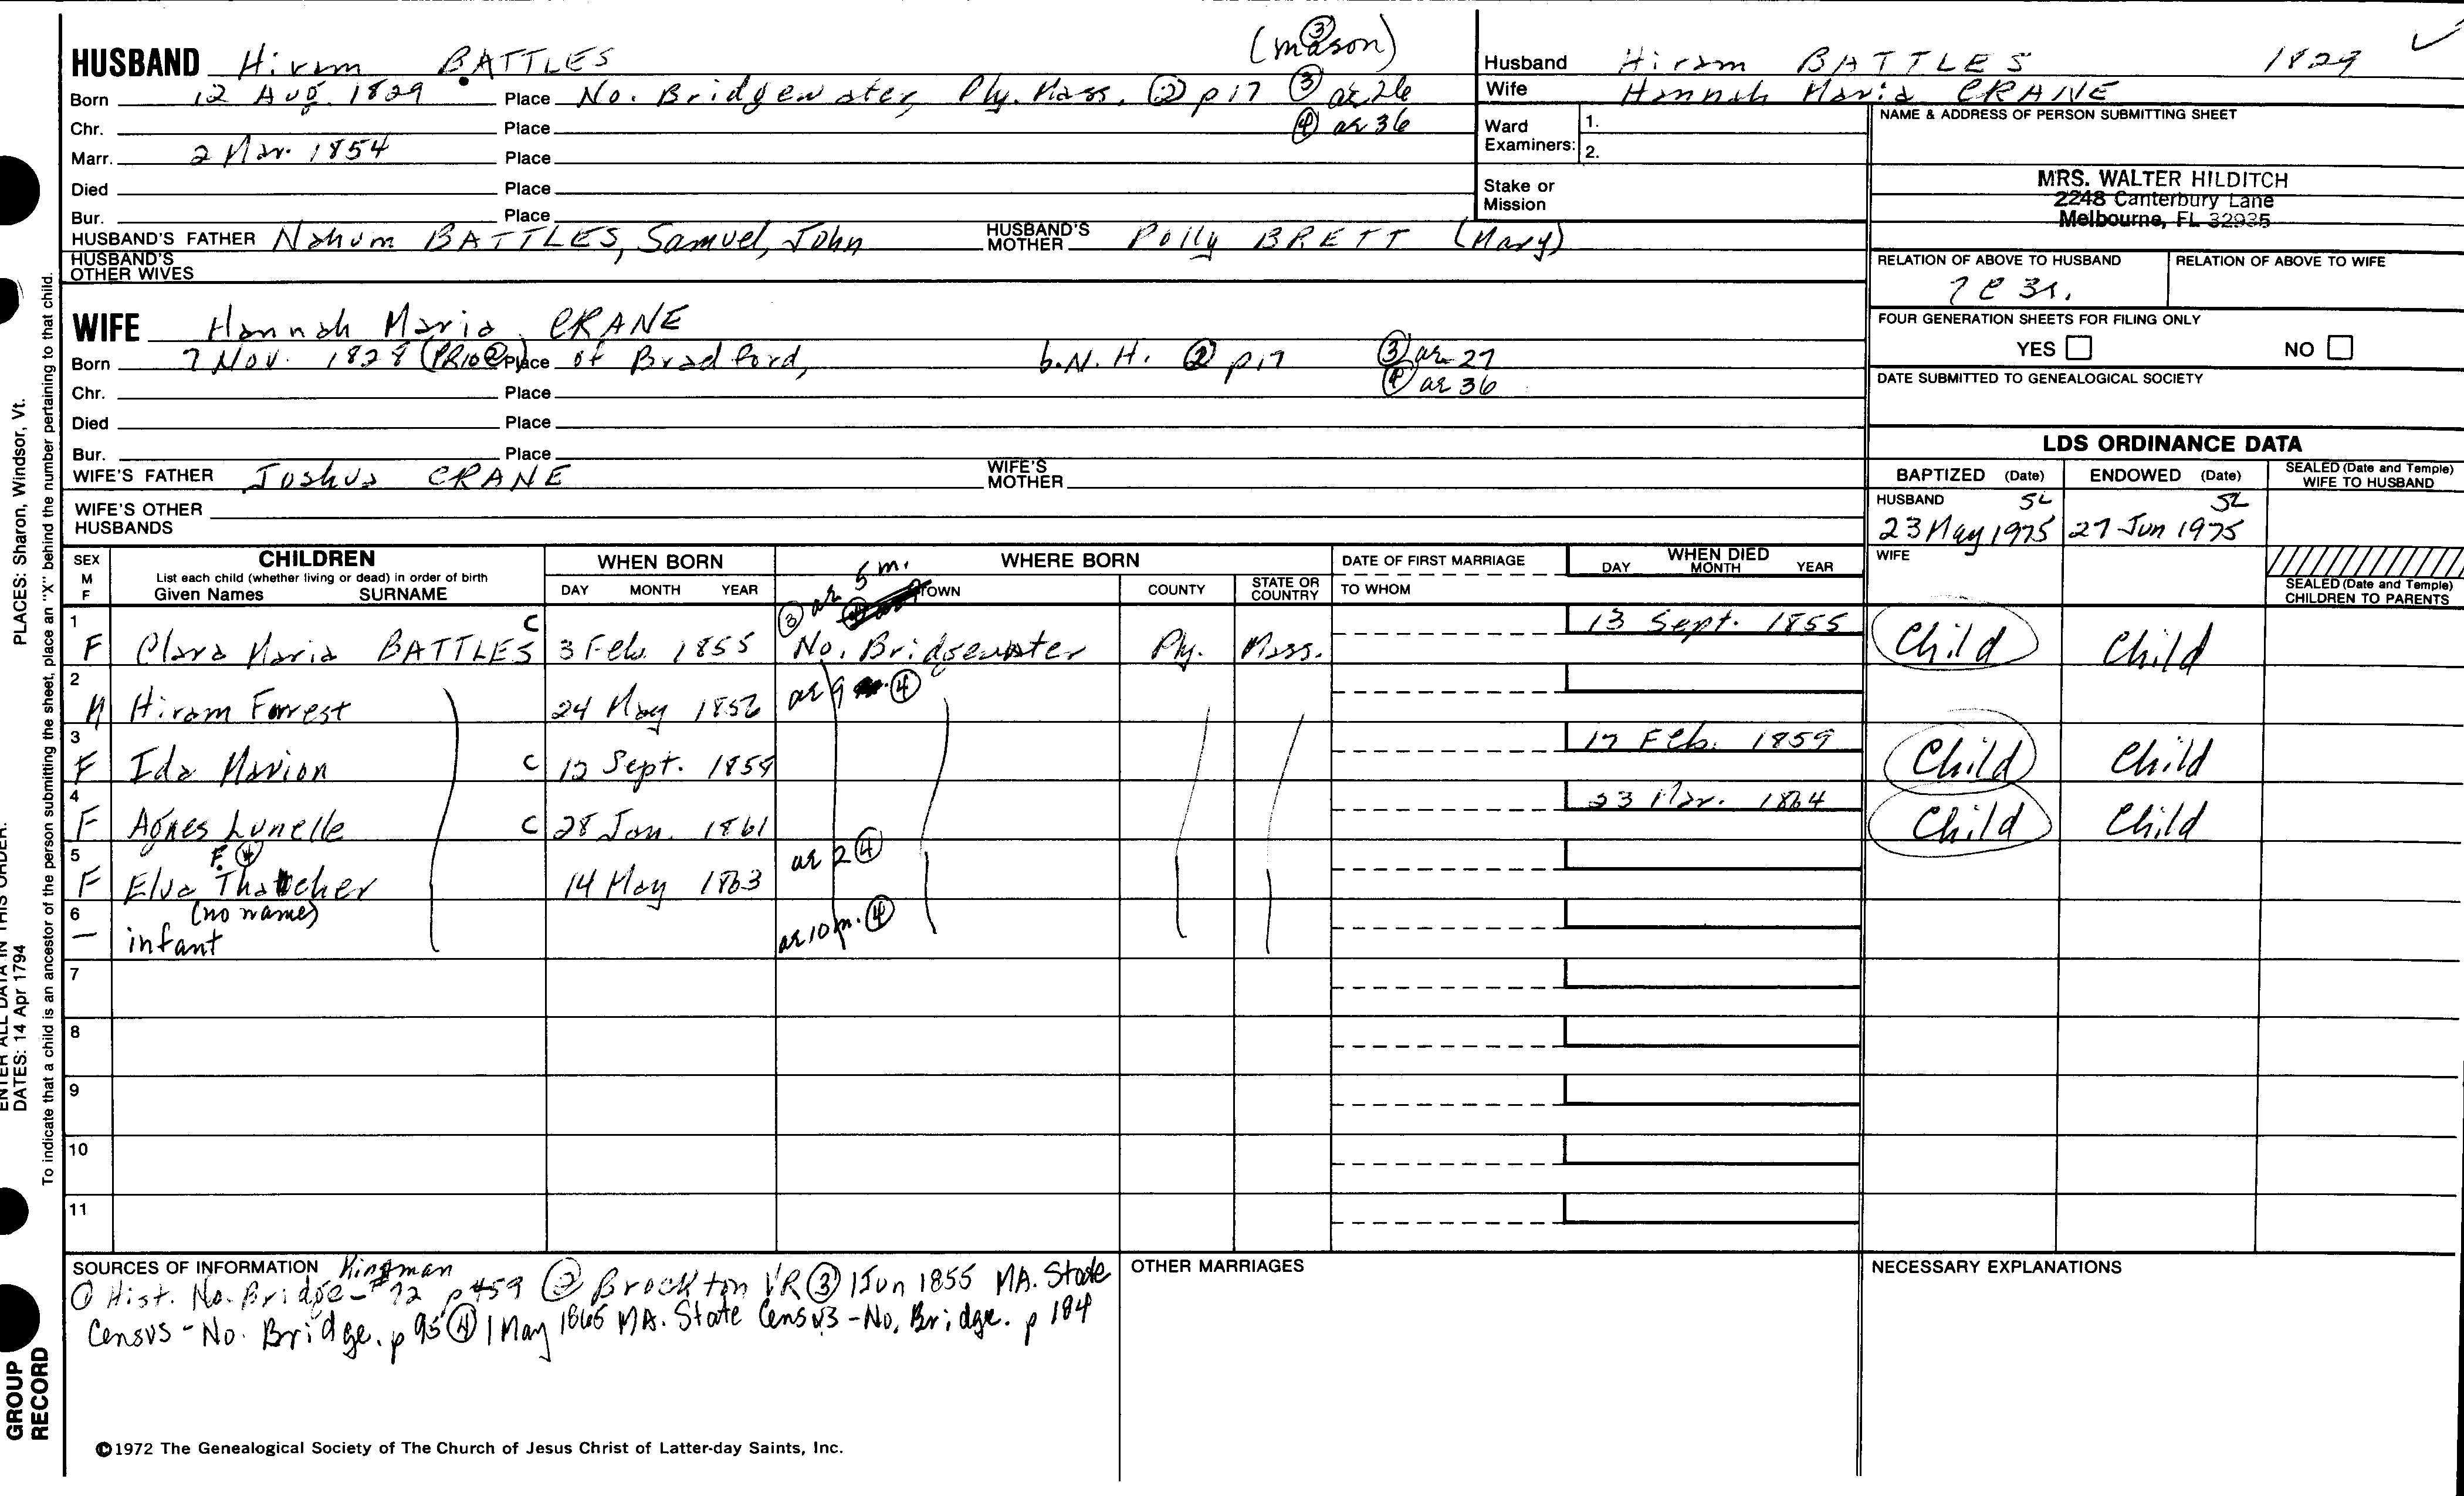 (mason) ③
HUSBAND Hiram BATTLES
Born 12 Aug. 1829 Place No. Bridgewater, Ply. Mass. ② p 17 ③ ae 26
Chr. Place ④ ae 36
Marr. 2 Mar. 1854 Place
Died Place
Bur. Place
HUSBAND'S FATHER Nahum BATTLES, Samuel, John HUSBAND'S MOTHER Polly BRETT (Mary)
HUSBAND'S OTHER WIVES
WIFE Hannah Maria CRANE
Born 7 Nov. 1828 (PR10②) Place of Bradford, b. N. H. ② p 17 ③ ae 27
Chr. Place ④ ae 36
Died Place
Bur. Place
WIFE'S FATHER Joshua CRANE WIFE'S MOTHER
WIFE'S OTHER HUSBANDS
Husband Hiram BATTLES 1829
Wife Hannah Maria CRANE
Ward Examiners: 1.
2.
Stake or Mission
NAME & ADDRESS OF PERSON SUBMITTING SHEET
MRS. WALTER HILDITCH
2248 Canterbury Lane
Melbourne, FL 32935
RELATION OF ABOVE TO HUSBAND RELATION OF ABOVE TO WIFE
FOUR GENERATION SHEETS FOR FILING ONLY
YES NO
DATE SUBMITTED TO GENEALOGICAL SOCIETY
LDS ORDINANCE DATA
BAPTIZED (Date) ENDOWED (Date) SEALED (Date and Temple) WIFE TO HUSBAND
HUSBAND SL SL
23 May 1975 27 Jun 1975
WIFE
SEALED (Date and Temple) CHILDREN TO PARENTS
SEX M F CHILDREN WHEN BORN WHERE BORN DATE OF FIRST MARRIAGE WHEN DIED
List each child (whether living or dead) in order of birth
Given Names SURNAME DAY MONTH YEAR TOWN COUNTY STATE OR COUNTRY TO WHOM DAY MONTH YEAR
③ ae 5 m.
1 F Clara Maria BATTLES C 3 Feb. 1855 No. Bridgewater Ply. Mass. 13 Sept. 1855 Child Child
2 M Hiram Forrest 24 May 1856 ae 9 ④
3 F Ida Marion C 12 Sept. 1858 17 Feb. 1859 Child Child
4 F Agnes Lunelle C 28 Jan. 1861 23 Mar. 1864 Child Child
F. ④
5 F Elva Thatcher 14 May 1863 ae 2 ④
(no name)
6 — infant ae 10 m. ④
7
8
9
10
11
SOURCES OF INFORMATION Kingman
① Hist. No. Bridge - #92 p 459 ② Brockton VR ③ 1 Jun 1855 MA. State
Census - No. Bridge. p 95 ④ 1 May 1865 MA. State Census - No. Bridge. p 184
OTHER MARRIAGES
NECESSARY EXPLANATIONS
©1972 The Genealogical Society of The Church of Jesus Christ of Latter-day Saints, Inc.
PLACES: Sharon, Windsor, Vt.
To indicate that a child is an ancestor of the person submitting the sheet, place an "X" behind the number pertaining to that child.
ENTER ALL DATA IN THIS ORDER:
DATES: 14 Apr 1794
GROUP RECORD